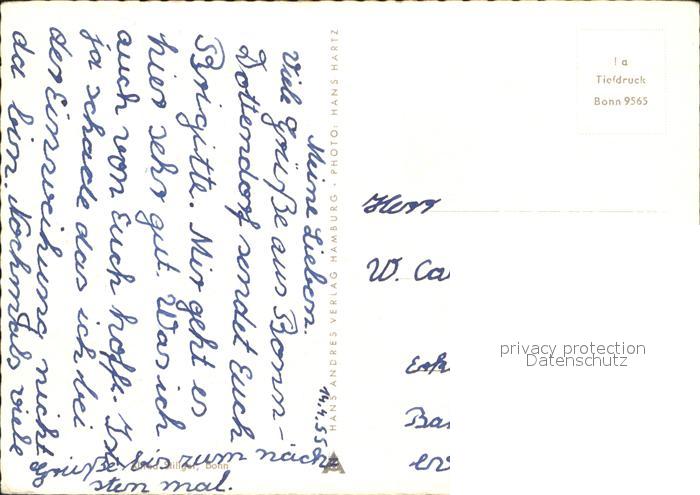 14.4.55
Meine Lieben.
Viele Grüße aus Bonn-
Dottendorf sendet Euch
Brigitte. Mir geht es
hier sehr gut. Was ich
auch von Euch hoffe. Ist
ja schade das ich bei
der Einweihung nicht
da bin. Nochmals viele
Grüße bis zum näch-
sten mal.
HANS ANDRES VERLAG HAMBURG · PHOTO: HANS HARTZ
Bonn
! a
Tiefdruck
Bonn 9565
Herr
W. Ca
Ba
privacy protection
Datenschutz